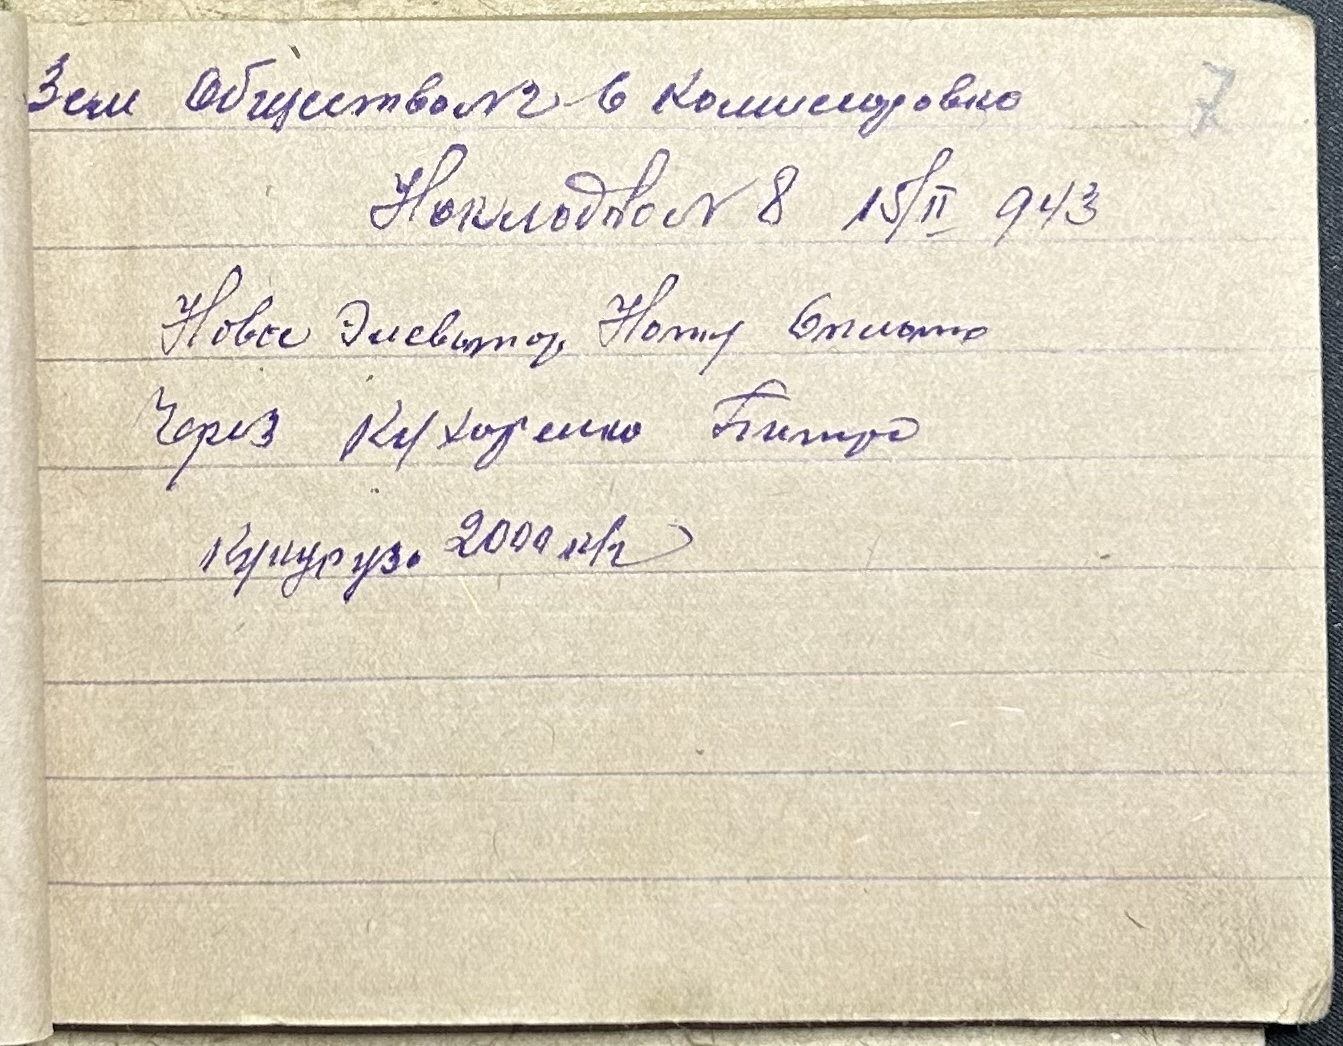 Зем Общество №2 с Комисаровка 7
Накладная № 8 15/II 943
Новое Элеватор Нату Оплата
Через Кухаренко Питро
Кукуруз. 2000 кг